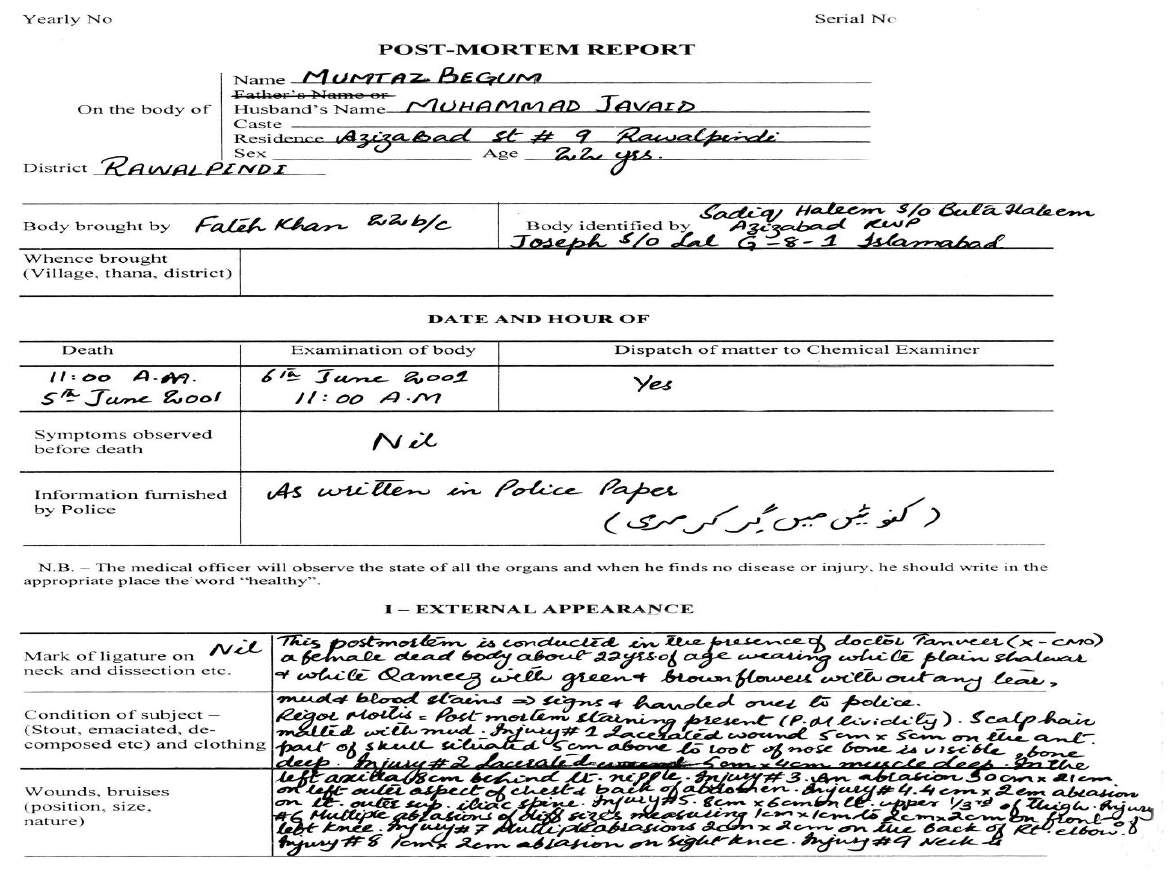 Yearly No
Serial No
POST-MORTEM REPORT
On the body of
Name MUMTAZ BEGUM
Father's Name or
Husband's Name MUHAMMAD JAVAID
Caste
Residence Azizabad St # 9 Rawalpindi
Sex Age 22 yrs.
District RAWALPINDI
Body brought by Fateh Khan 22 b/c
Body identified by Sadiq Haleem S/o Buta Haleem
Azizabad RWP
Joseph S/o Lal G-8-1 Islamabad
Whence brought
(Village, thana, district)
DATE AND HOUR OF
Death Examination of body Dispatch of matter to Chemical Examiner
11:00 A.M. 6th June 2001 Yes
5th June 2001 11:00 A.M
Symptoms observed
before death
Nil
Information furnished
by Police
As written in Police Paper
(کنوئیں میں گر کر مری)
N.B. – The medical officer will observe the state of all the organs and when he finds no disease or injury, he should write in the
appropriate place the word "healthy".
I – EXTERNAL APPEARANCE
Mark of ligature on
neck and dissection etc.
Nil
Condition of subject –
(Stout, emaciated, de-
composed etc) and clothing
Wounds, bruises
(position, size,
nature)
This postmortem is conducted in the presence of doctor Tanveer (X-CMO)
a female dead body about 22 yrs of age wearing white plain shalwar
& white Qameez with green & brown flowers without any tear,
mud & blood stains ⇒ signs & handed over to police.
Rigor Mortis = Post mortem staining present (P.M lividity). Scalp hair
matted with mud. Injury # 1 Lacerated wound 5cm x 5cm on the ant.
part of skull situated 5cm above to root of nose bone is visible, bone
deep. Injury # 2 Lacerated wound 5cm x 4cm muscle deep. In the
left axilla 18cm behind lt. nipple. Injury # 3. An abrasion 30cm x 21cm
on left outer aspect of chest & back of abdomen. Injury # 4. 4cm x 2cm abrasion
on lt. outer sup. iliac spine. Injury #5. 8cm x 6cm on lt. upper 1/3rd of thigh. Injury
#6 Multiple abrasions of diff sizes measuring 1cm x 1cm to 2cm x 2cm on front of
left knee. Injury # 7 Multiple abrasions 2cm x 2cm on the back of Rt. elbow.
Injury # 8 1cm x 2cm abrasion on right knee. Injury # 9 Neck is